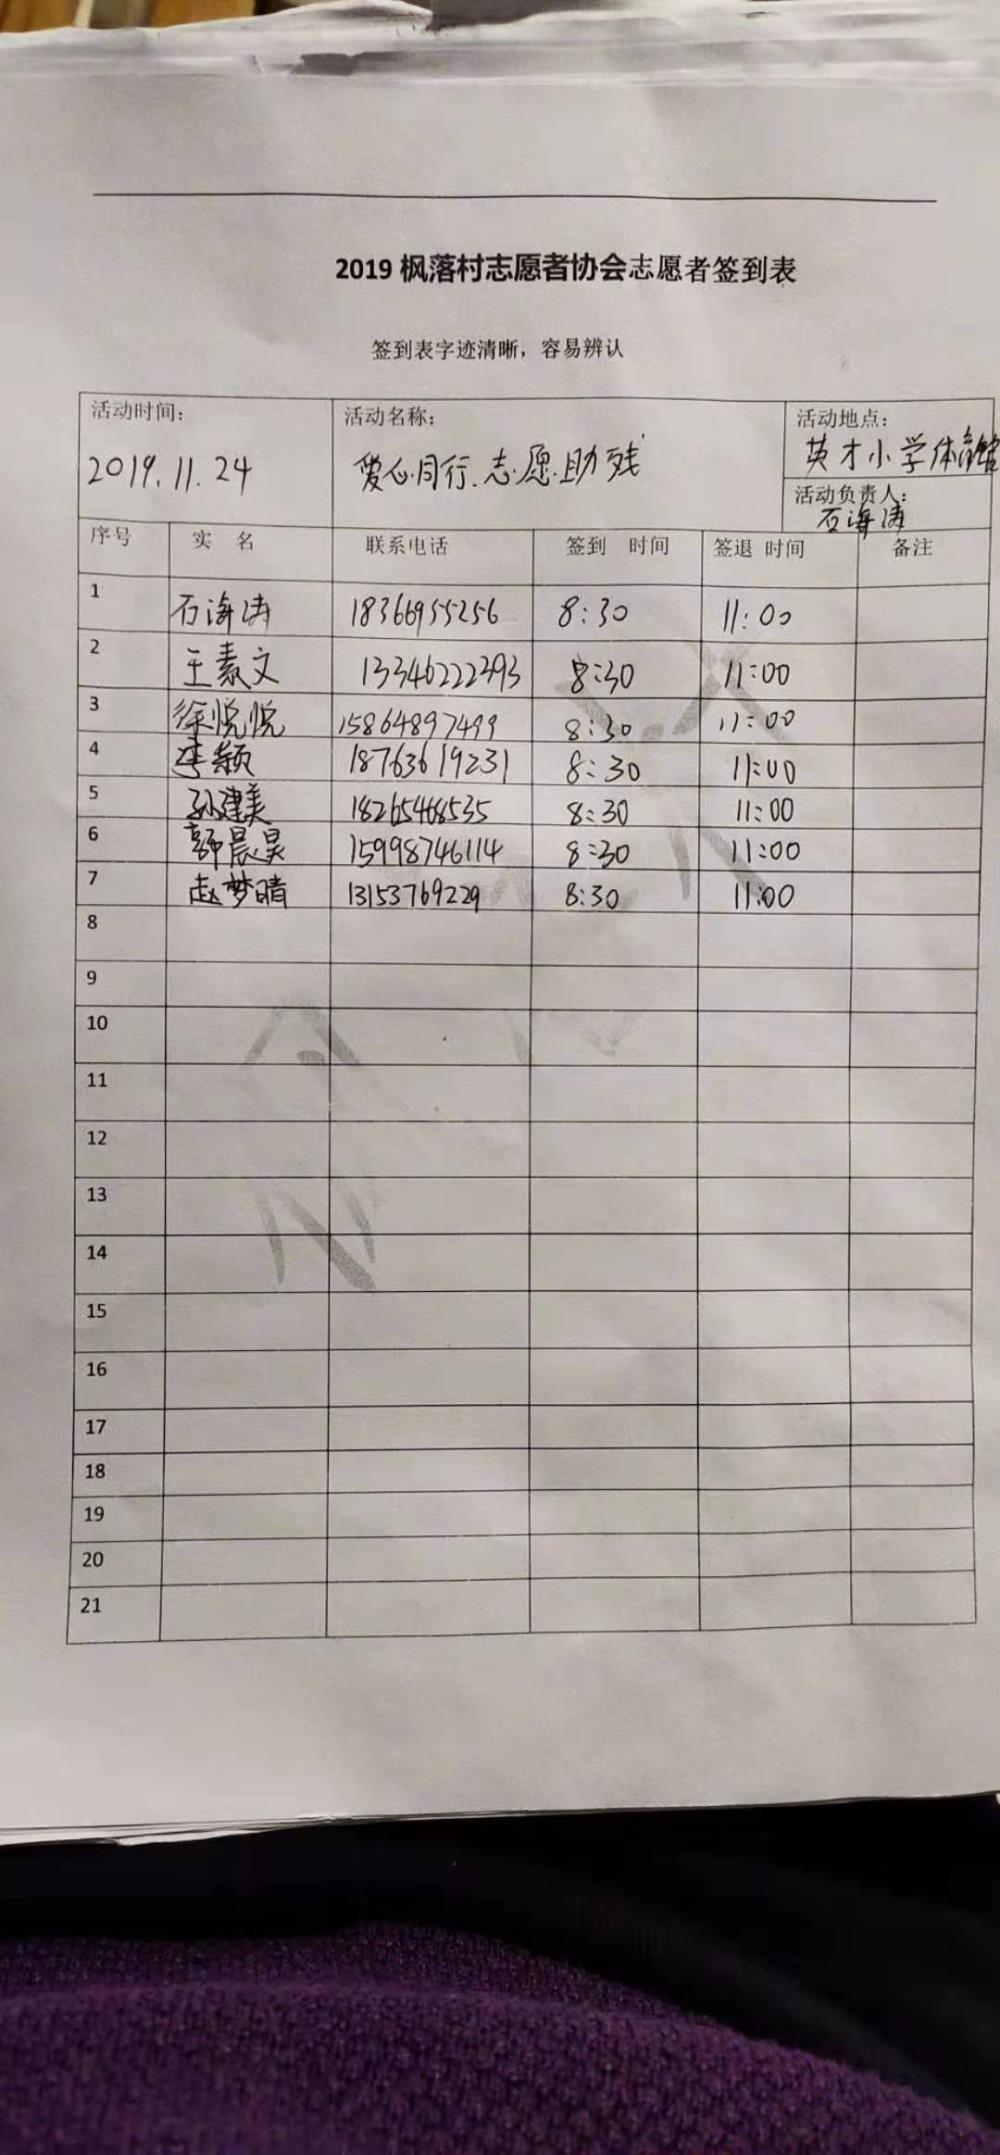 2019 枫落村志愿者协会志愿者签到表
签到表字迹清晰，容易辨认
活动时间： 活动名称： 活动地点：
2019.11.24 爱心同行.志愿助残 英才小学体育馆
活动负责人：
石海涛
序号 实 名 联系电话 签到 时间 签退 时间 备注
1 石海涛 18366955256 8:30 11:00
2 王素文 13346222393 8:30 11:00
3 徐悦悦 15864897499 8:30 11:00
4 李颖 18763619231 8:30 11:00
5 孙建美 18265468535 8:30 11:00
6 郭晨昊 15998746114 8:30 11:00
7 赵梦晴 13153769229 8:30 11:00
8
9
10
11
12
13
14
15
16
17
18
19
20
21